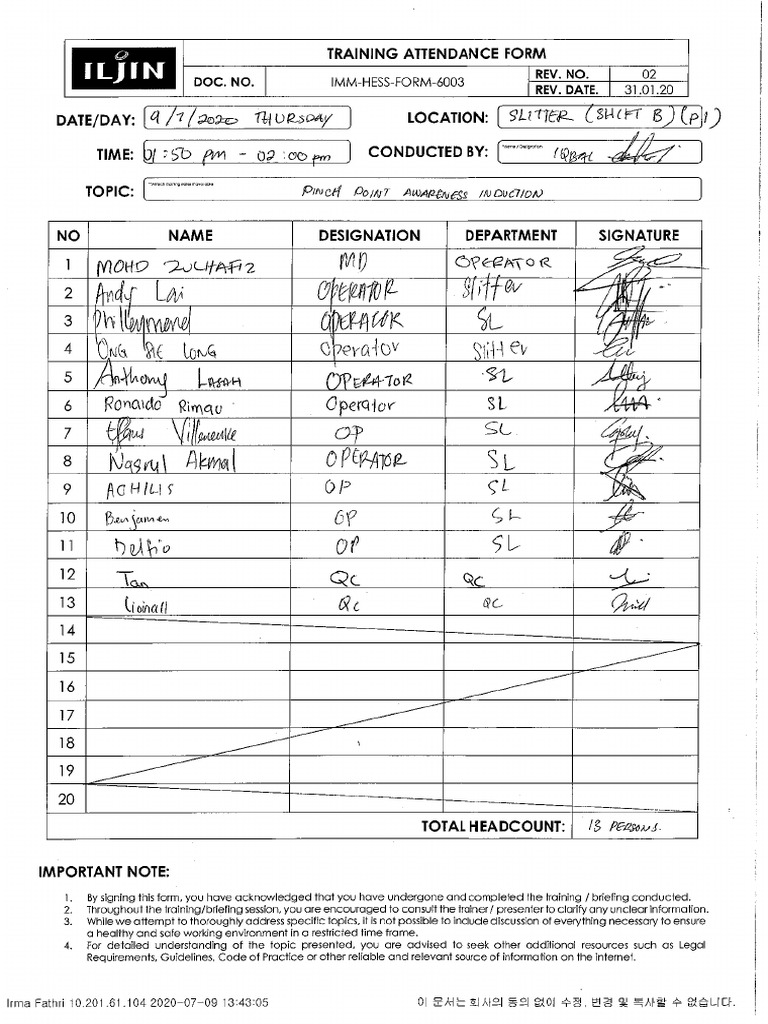 ILJIN
TRAINING ATTENDANCE FORM
DOC. NO. IMM-HESS-FORM-6003 REV. NO. 02
REV. DATE. 31.01.20
DATE/DAY: 9/7/2020 THURSDAY LOCATION: SLITTER (SHIFT B) (P1)
TIME: 01:50 pm - 02:00 pm CONDUCTED BY: IQBAL
TOPIC: PINCH POINT AWARENESS INDUCTION
NO NAME DESIGNATION DEPARTMENT SIGNATURE
1 MOHD ZULHAFIZ MD OPERATOR
2 Andy Lai OPERATOR Slitter
3 OPERATOR SL
4 ONG SIE LONG Operator Slitter
5 Anthony LASAH OPERATOR SL
6 Ronaldo Rimau Operator SL
7 Villeneuke OP SL
8 Nasrul Akmal OPERATOR SL
9 ACHILIS OP SL
10 Benjamen OP SL
11 Delfio OP SL
12 Tan QC QC
13 QC QC
14
15
16
17
18
19
20
TOTAL HEADCOUNT: 13 PERSONS.
IMPORTANT NOTE:
1. By signing this form, you have acknowledged that you have undergone and completed the training / briefing conducted.
2. Throughout the training/briefing session, you are encouraged to consult the trainer/ presenter to clarify any unclear information.
3. While we attempt to thoroughly address specific topics, it is not possible to include discussion of everything necessary to ensure
a healthy and safe working environment in a restricted time frame.
4. For detailed understanding of the topic presented, you are advised to seek other additional resources such as Legal
Requirements, Guidelines, Code of Practice or other reliable and relevant source of information on the internet.
Irma Fathri 10.201.61.104 2020-07-09 13:43:05 이 문서는 회사의 동의 없이 수정, 변경 및 복사할 수 없습니다.